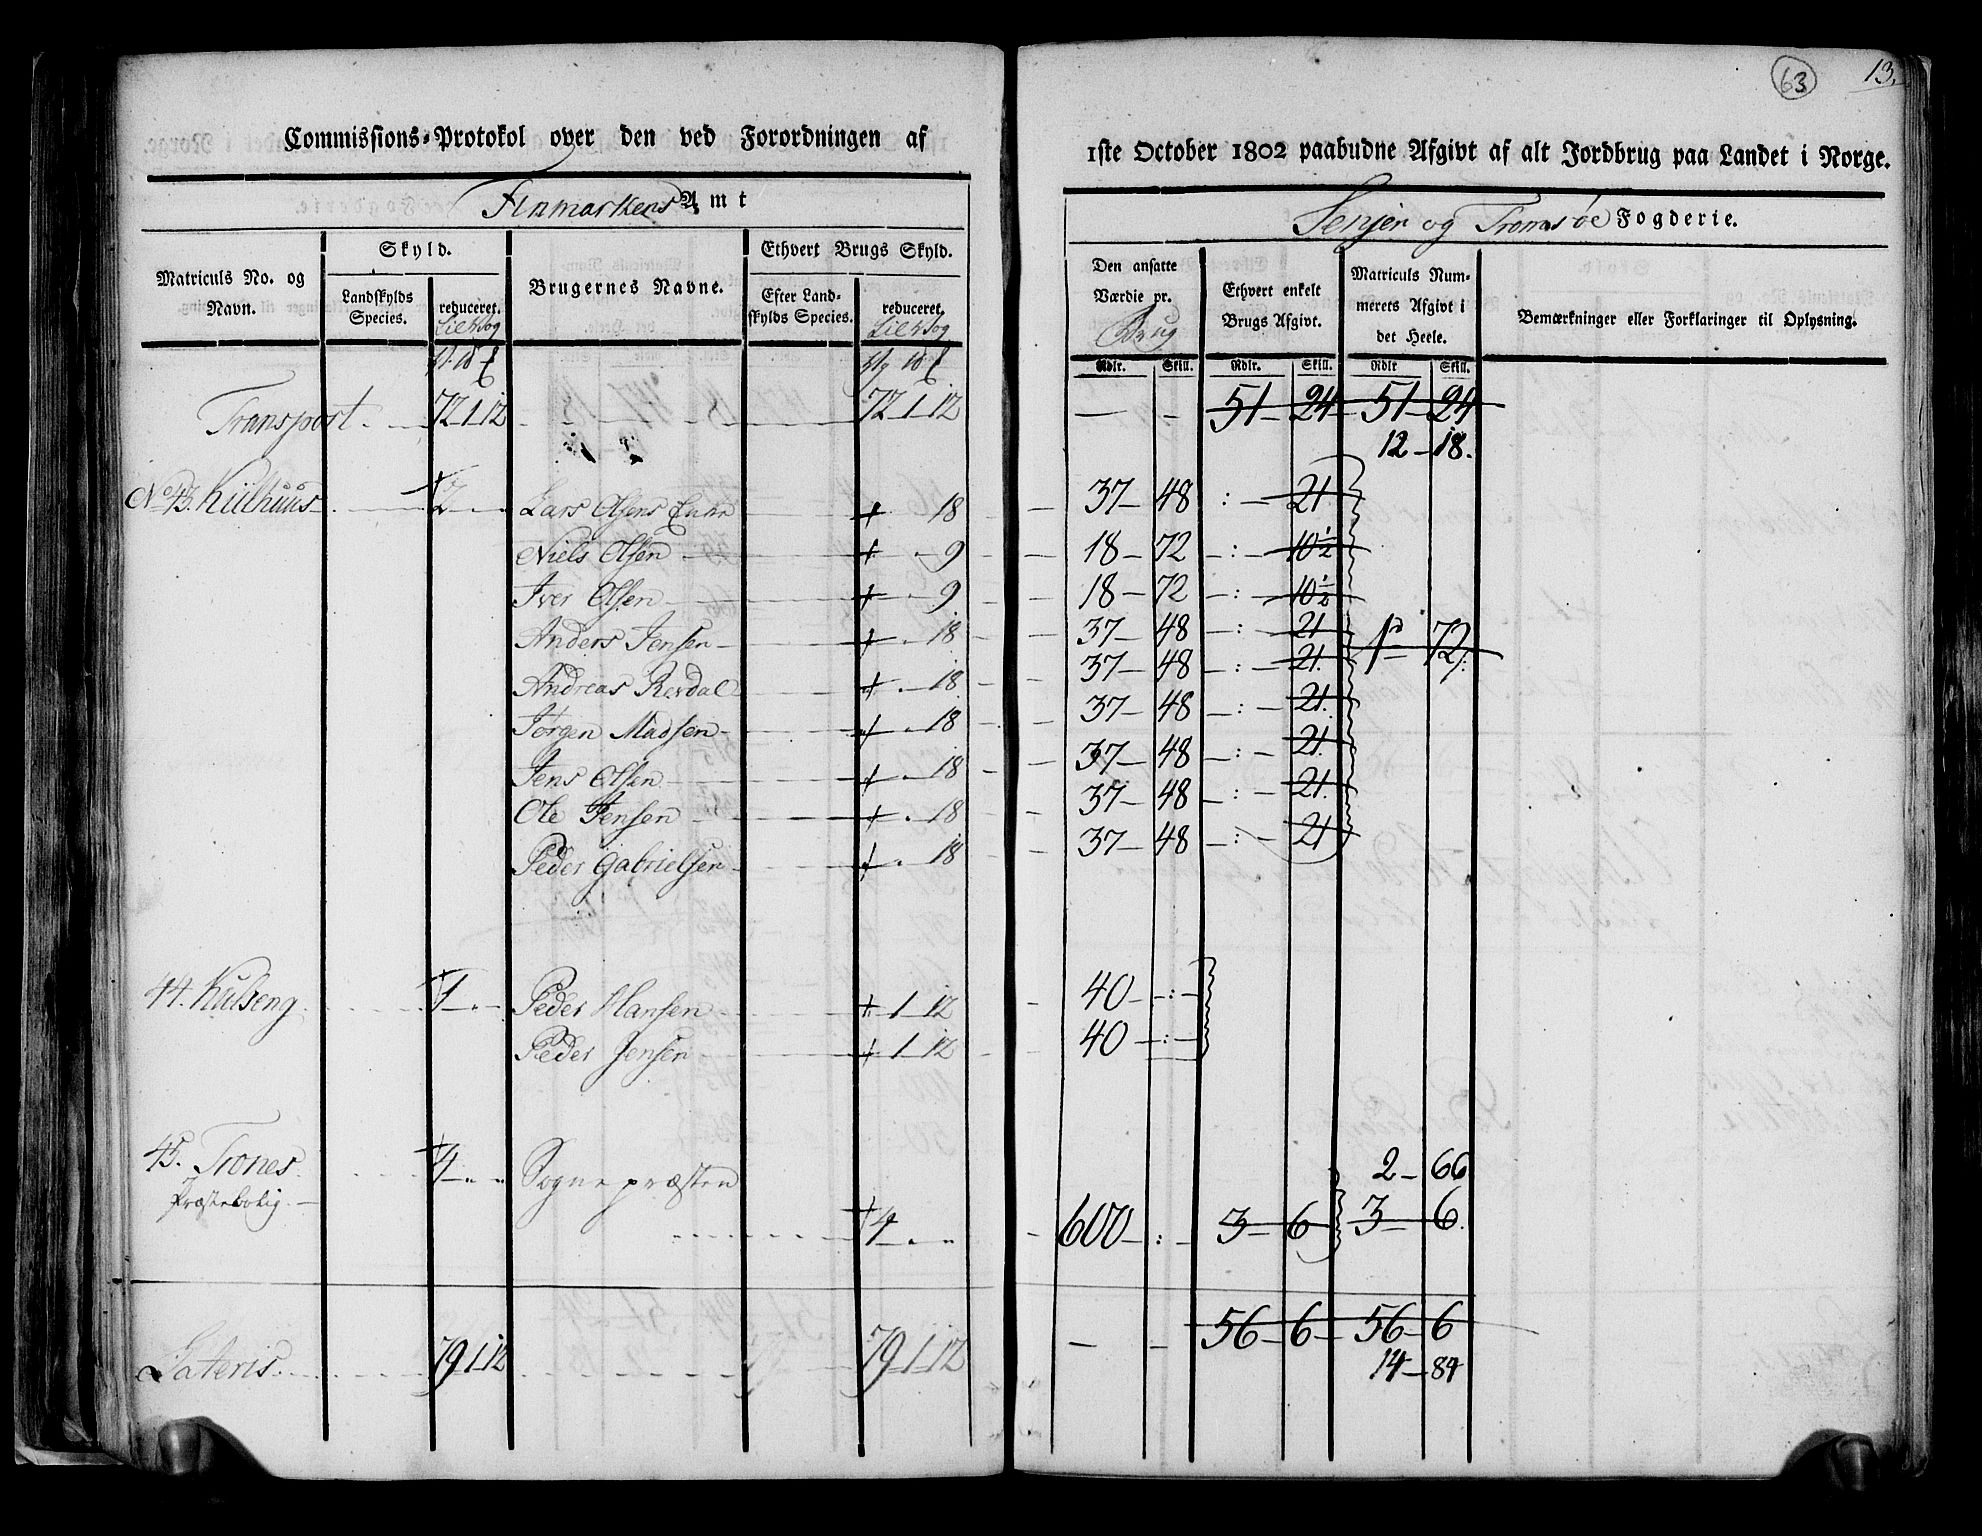 63
13.
Commissions-Protokol over den ved Forordningen af
1ste October 1802 paabudne Afgivt af alt Jordbrug paa Landet i Norge.
Finmarkens Amt
Senjen og Tromsøe Fogderie.
Matriculs No. og Navn.
Skyld.
Landskylds Species.
reduceret.
Brugernes Navne.
Ethvert Brugs Skyld.
Efter Landskylds Species.
reduceret.
Den ansatte Værdie pr. Brug
Ethvert enkelt Brugs Afgivt.
Matriculs Nummerets Afgivt i det Heele.
Bemærkninger eller Forklaringer til Oplysning.
Rdlr. Skill. Rdlr. Skill. Rdlr Skill.
Transport 72 1 12 72 1 12 — — 51 — 24 51 — 24
12 — 18.
No 43. Kulhuus 2 Lars Olsens Enke 18 37 — 48 : — 21
Niels Olsen 9 18 — 72 : — 10½
Iver Olsen 9 18 — 72 : — 10½
Anders Jensen 18 37 — 48 : — 21
Andreas Revdal 18 37 — 48 : — 21. 1 — 72
Jørgen Madsen 18 37 — 48 : — 21.
Jens Olsen 18 37 — 48 : — 21.
Ole Jensen 18 37 — 48 : — 21.
Peder Gabrielsen 18 37 — 48 : — 21
44. Kulseng 1 Peder Hansen 1 12 40 — : —
Peder Jensen 1 12 40 — : —
45. Trones 4 Sognepræsten 2 — 66
Præstebolig 4 600 — : — 3 — 6 3 — 6.
Lateris 79 1 12 79 1 12 — — 56 — 6 56 — 6
14 — 84